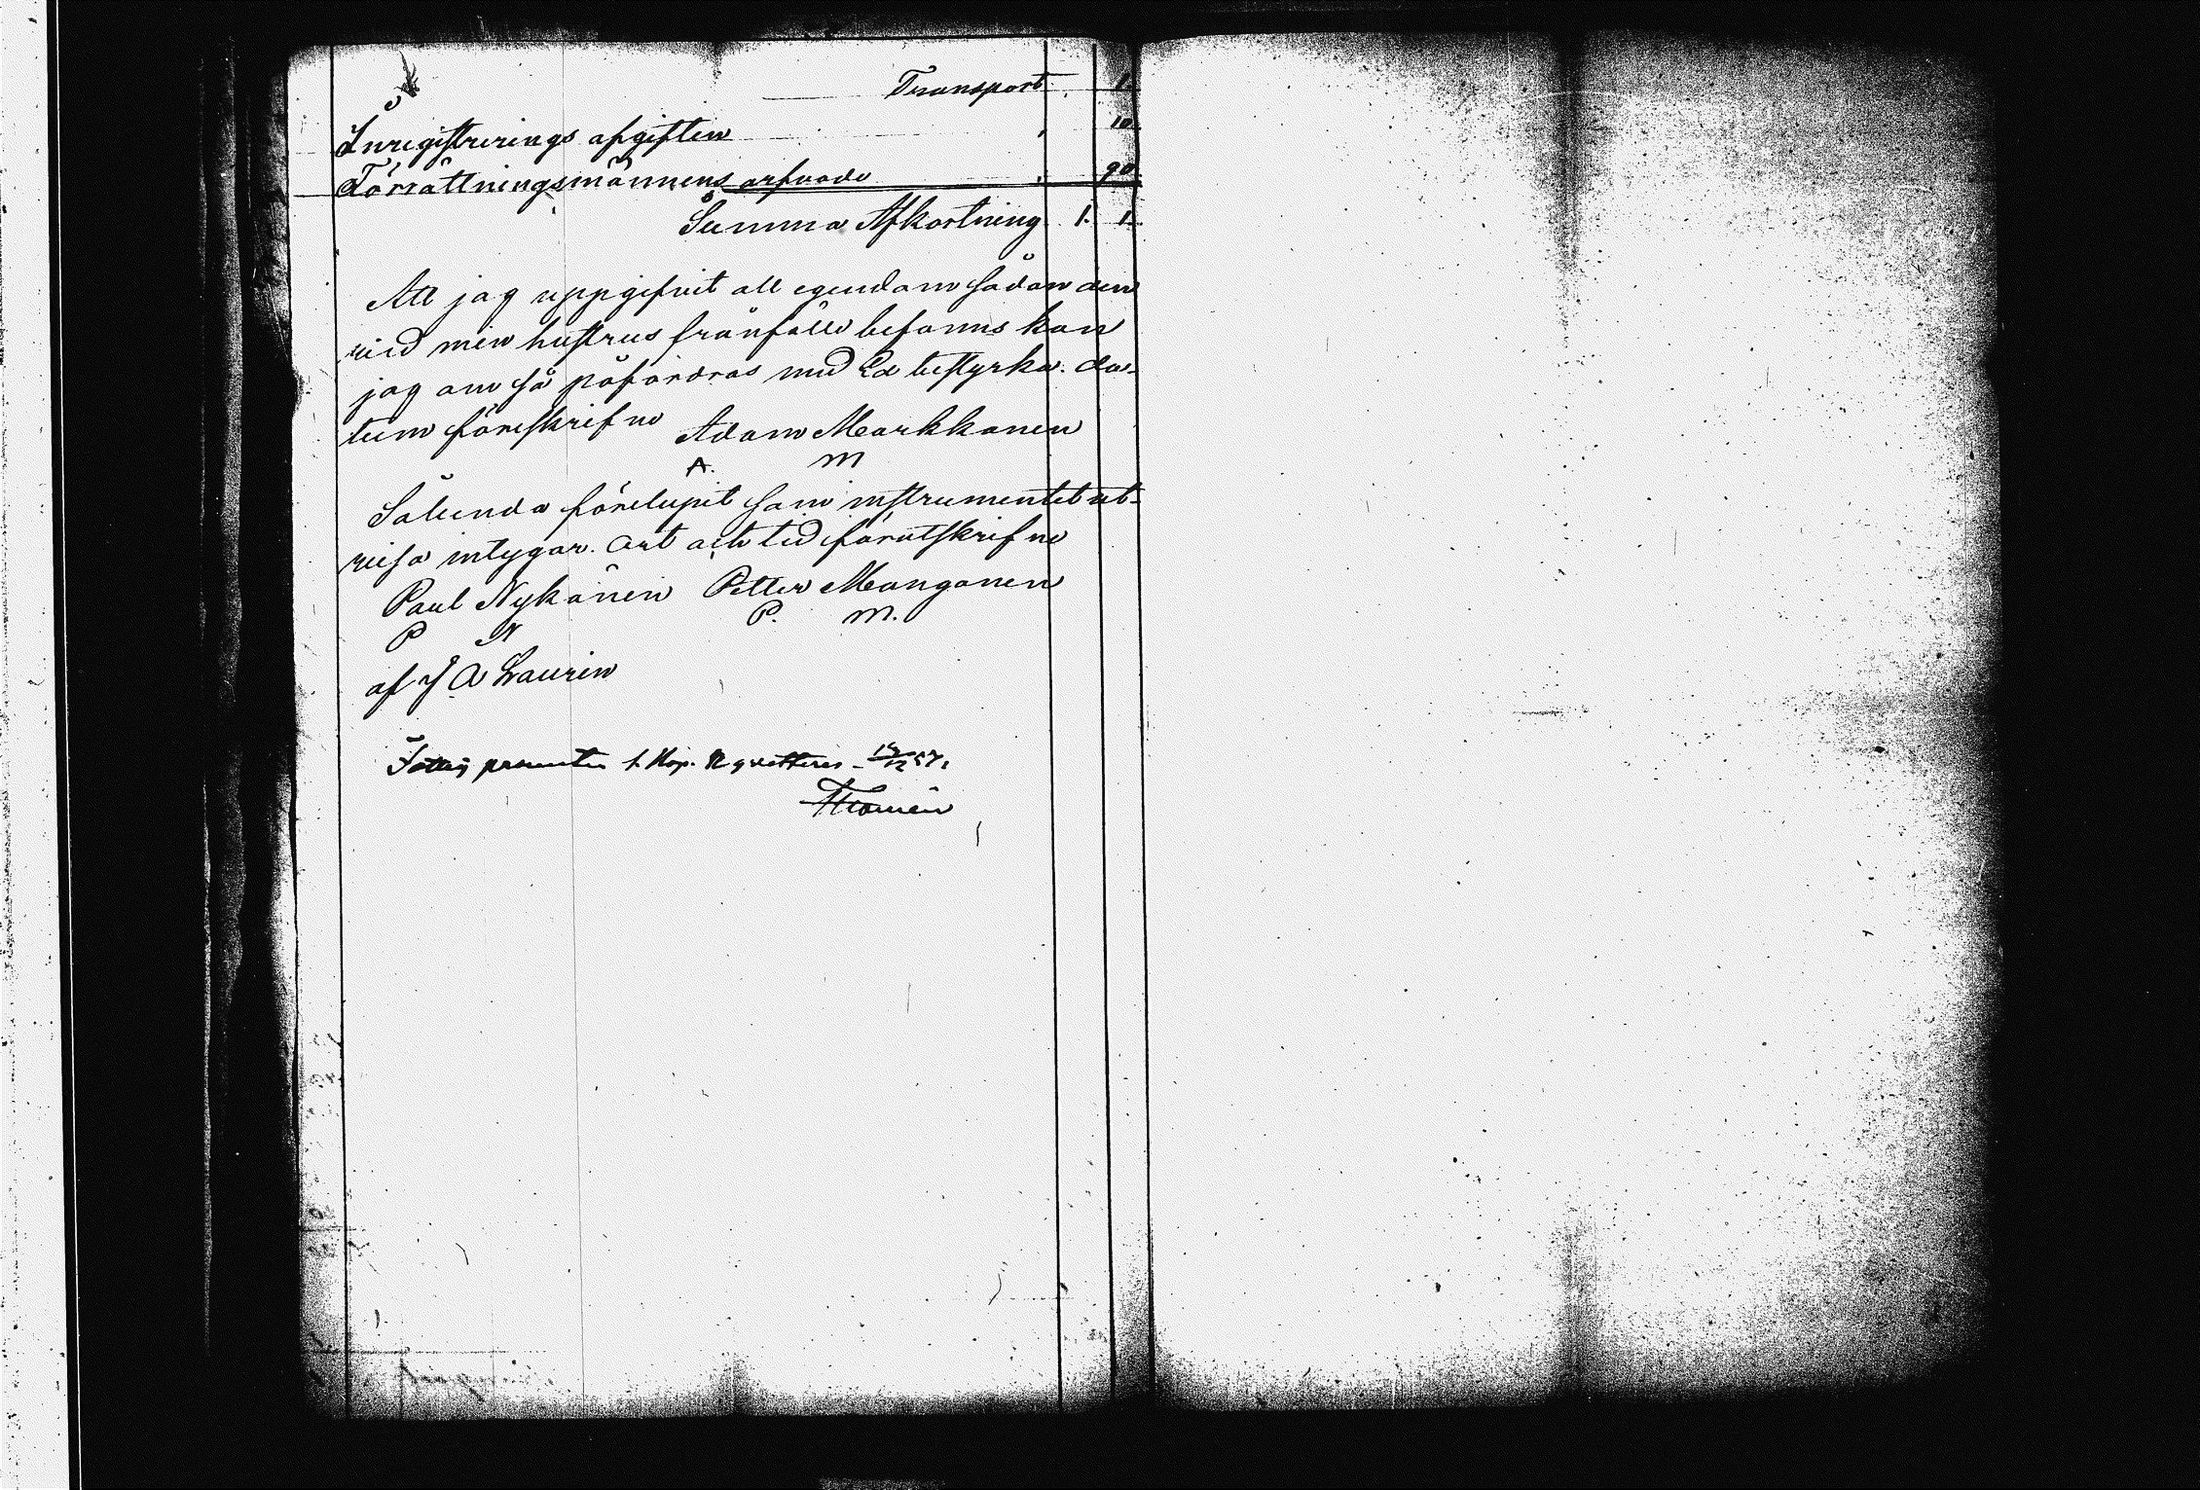 Transport 1.
Inregistrerings afgiften 10.
Förrättningsmännens arfvode 90.
Summa Afkortning 1. 1.
Att jag uppgifvit all egendom sådan den
vid min hustrus frånfälle befanns kan
jag om så påfordras med Ed bestyrka. da-
tum föreskrifne Adam Markkanen
A. M
Sålunda förelupit som instrumentet ut-
visa intygar. Ort och tid förutskrifne
Paul Nykänen Petter Manganen
P N P. M.
af J A Laurin
Fattig procenten 1. Kop. qvitteras 57.